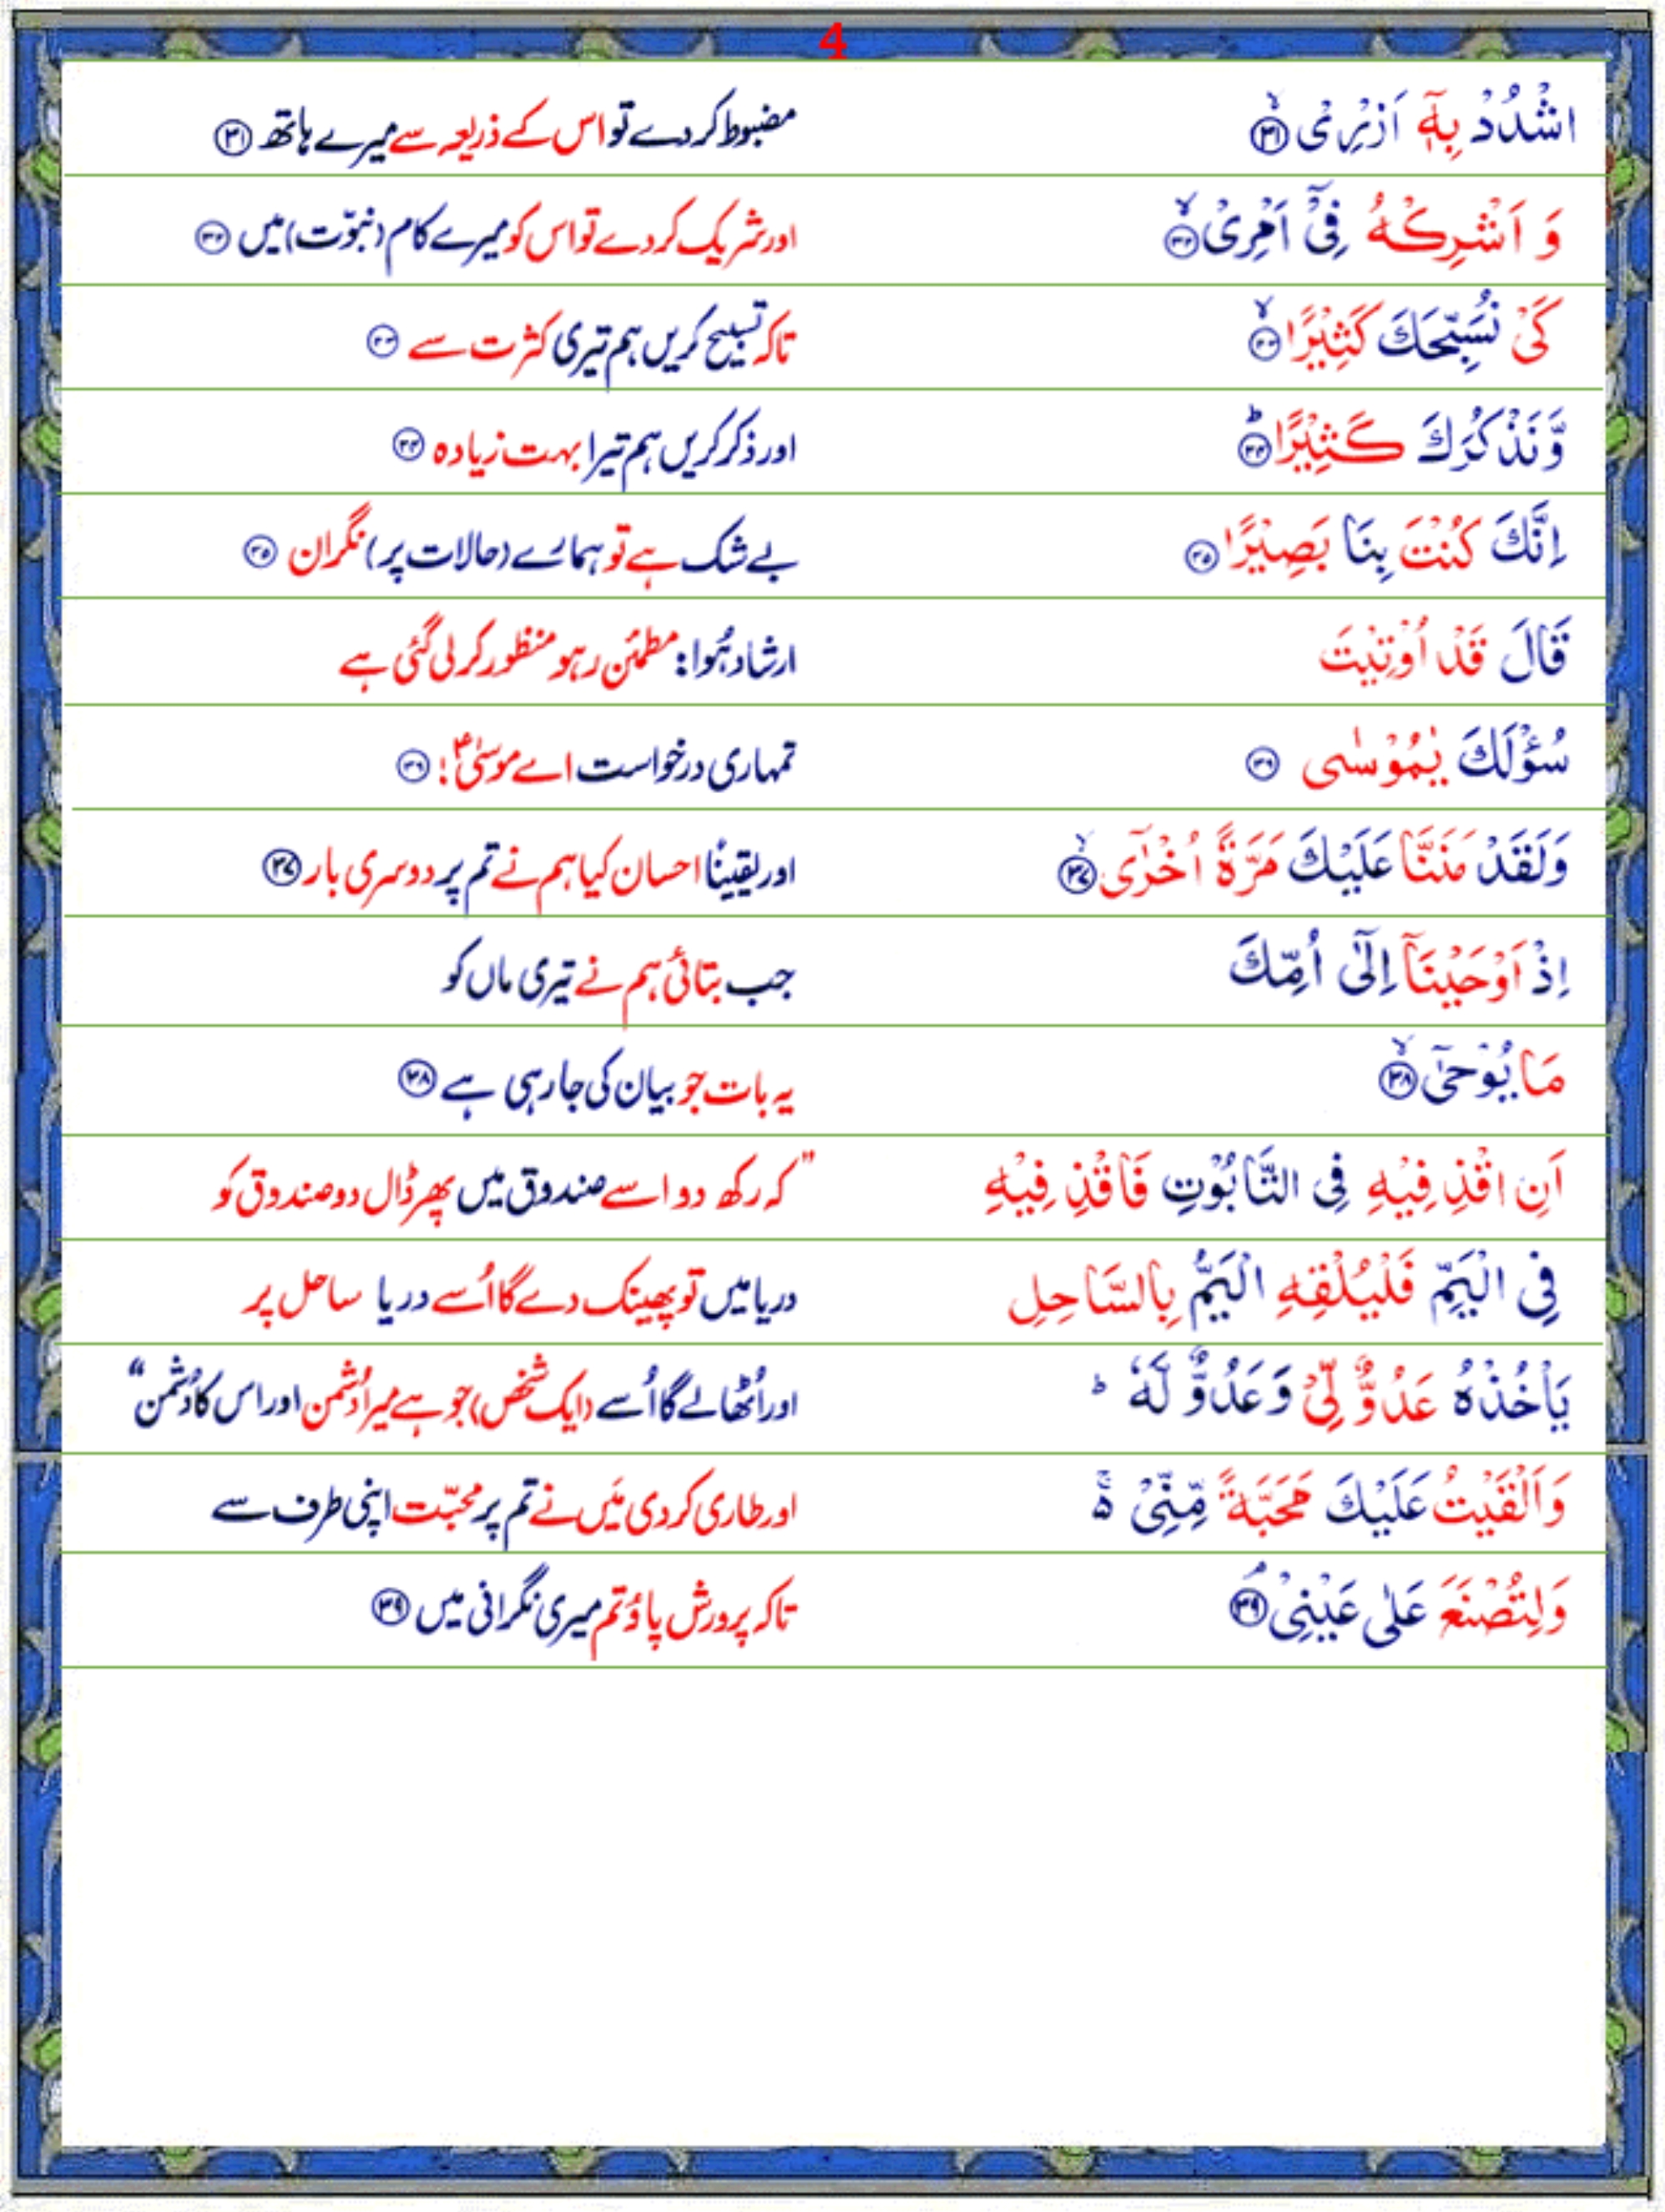 4
اشْدُدْ بِهٖٓ اَزْرِیْ ۙ﴿۳۱﴾ مضبوط کر دے تو اس کے ذریعہ سے میرے ہاتھ ﴿۳۱﴾
وَ اَشْرِكْهُ فِیْۤ اَمْرِیْ ۙ﴿۳۲﴾ اور شریک کر دے تو اس کو میرے کام (نبوّت) میں ﴿۳۲﴾
كَیْ نُسَبِّحَكَ كَثِیْرًا ۙ﴿۳۳﴾ تاکہ تسبیح کریں ہم تیری کثرت سے ﴿۳۳﴾
وَّنَذْكُرَكَ كَثِیْرًا ؕ﴿۳۴﴾ اور ذکر کریں ہم تیرا بہت زیادہ ﴿۳۴﴾
اِنَّكَ كُنْتَ بِنَا بَصِیْرًا ﴿۳۵﴾ بے شک ہے تو ہمارے (حالات پر) نگران ﴿۳۵﴾
قَالَ قَدْ اُوْتِیْتَ ارشاد ہُوا: مطمئن رہو منظور کر لی گئی ہے
سُؤْلَكَ یٰمُوْسٰی ﴿۳۶﴾ تمہاری درخواست اے موسٰیؑ! ﴿۳۶﴾
وَلَقَدْ مَنَنَّا عَلَیْكَ مَرَّةً اُخْرٰۤی ۙ﴿۳۷﴾ اور یقیناً احسان کیا ہم نے تم پر دوسری بار ﴿۳۷﴾
اِذْ اَوْحَیْنَاۤ اِلٰۤی اُمِّكَ جب بتائی ہم نے تیری ماں کو
مَا یُوْحٰۤی ۙ﴿۳۸﴾ یہ بات جو بیان کی جا رہی ہے ﴿۳۸﴾
اَنِ اقْذِفِیْهِ فِی التَّابُوْتِ فَاقْذِفِیْهِ "کہ رکھ دو اسے صندوق میں پھر ڈال دو صندوق کو
فِی الْیَمِّ فَلْیُلْقِهِ الْیَمُّ بِالسَّاحِلِ دریا میں تو پھینک دے گا اُسے دریا ساحل پر
یَاْخُذْهُ عَدُوٌّ لِّیْ وَعَدُوٌّ لَّهٗ ؕ اور اُٹھا لے گا اُسے (ایک شخص) جو ہے میرا دُشمن اور اس کا دُشمن"
وَاَلْقَیْتُ عَلَیْكَ مَحَبَّةً مِّنِّیْ ۬ۚ اور طاری کر دی مَیں نے تم پر محبّت اپنی طرف سے
وَلِتُصْنَعَ عَلٰی عَیْنِیْ ۘ﴿۳۹﴾ تاکہ پرورش پاؤ تم میری نگرانی میں ﴿۳۹﴾